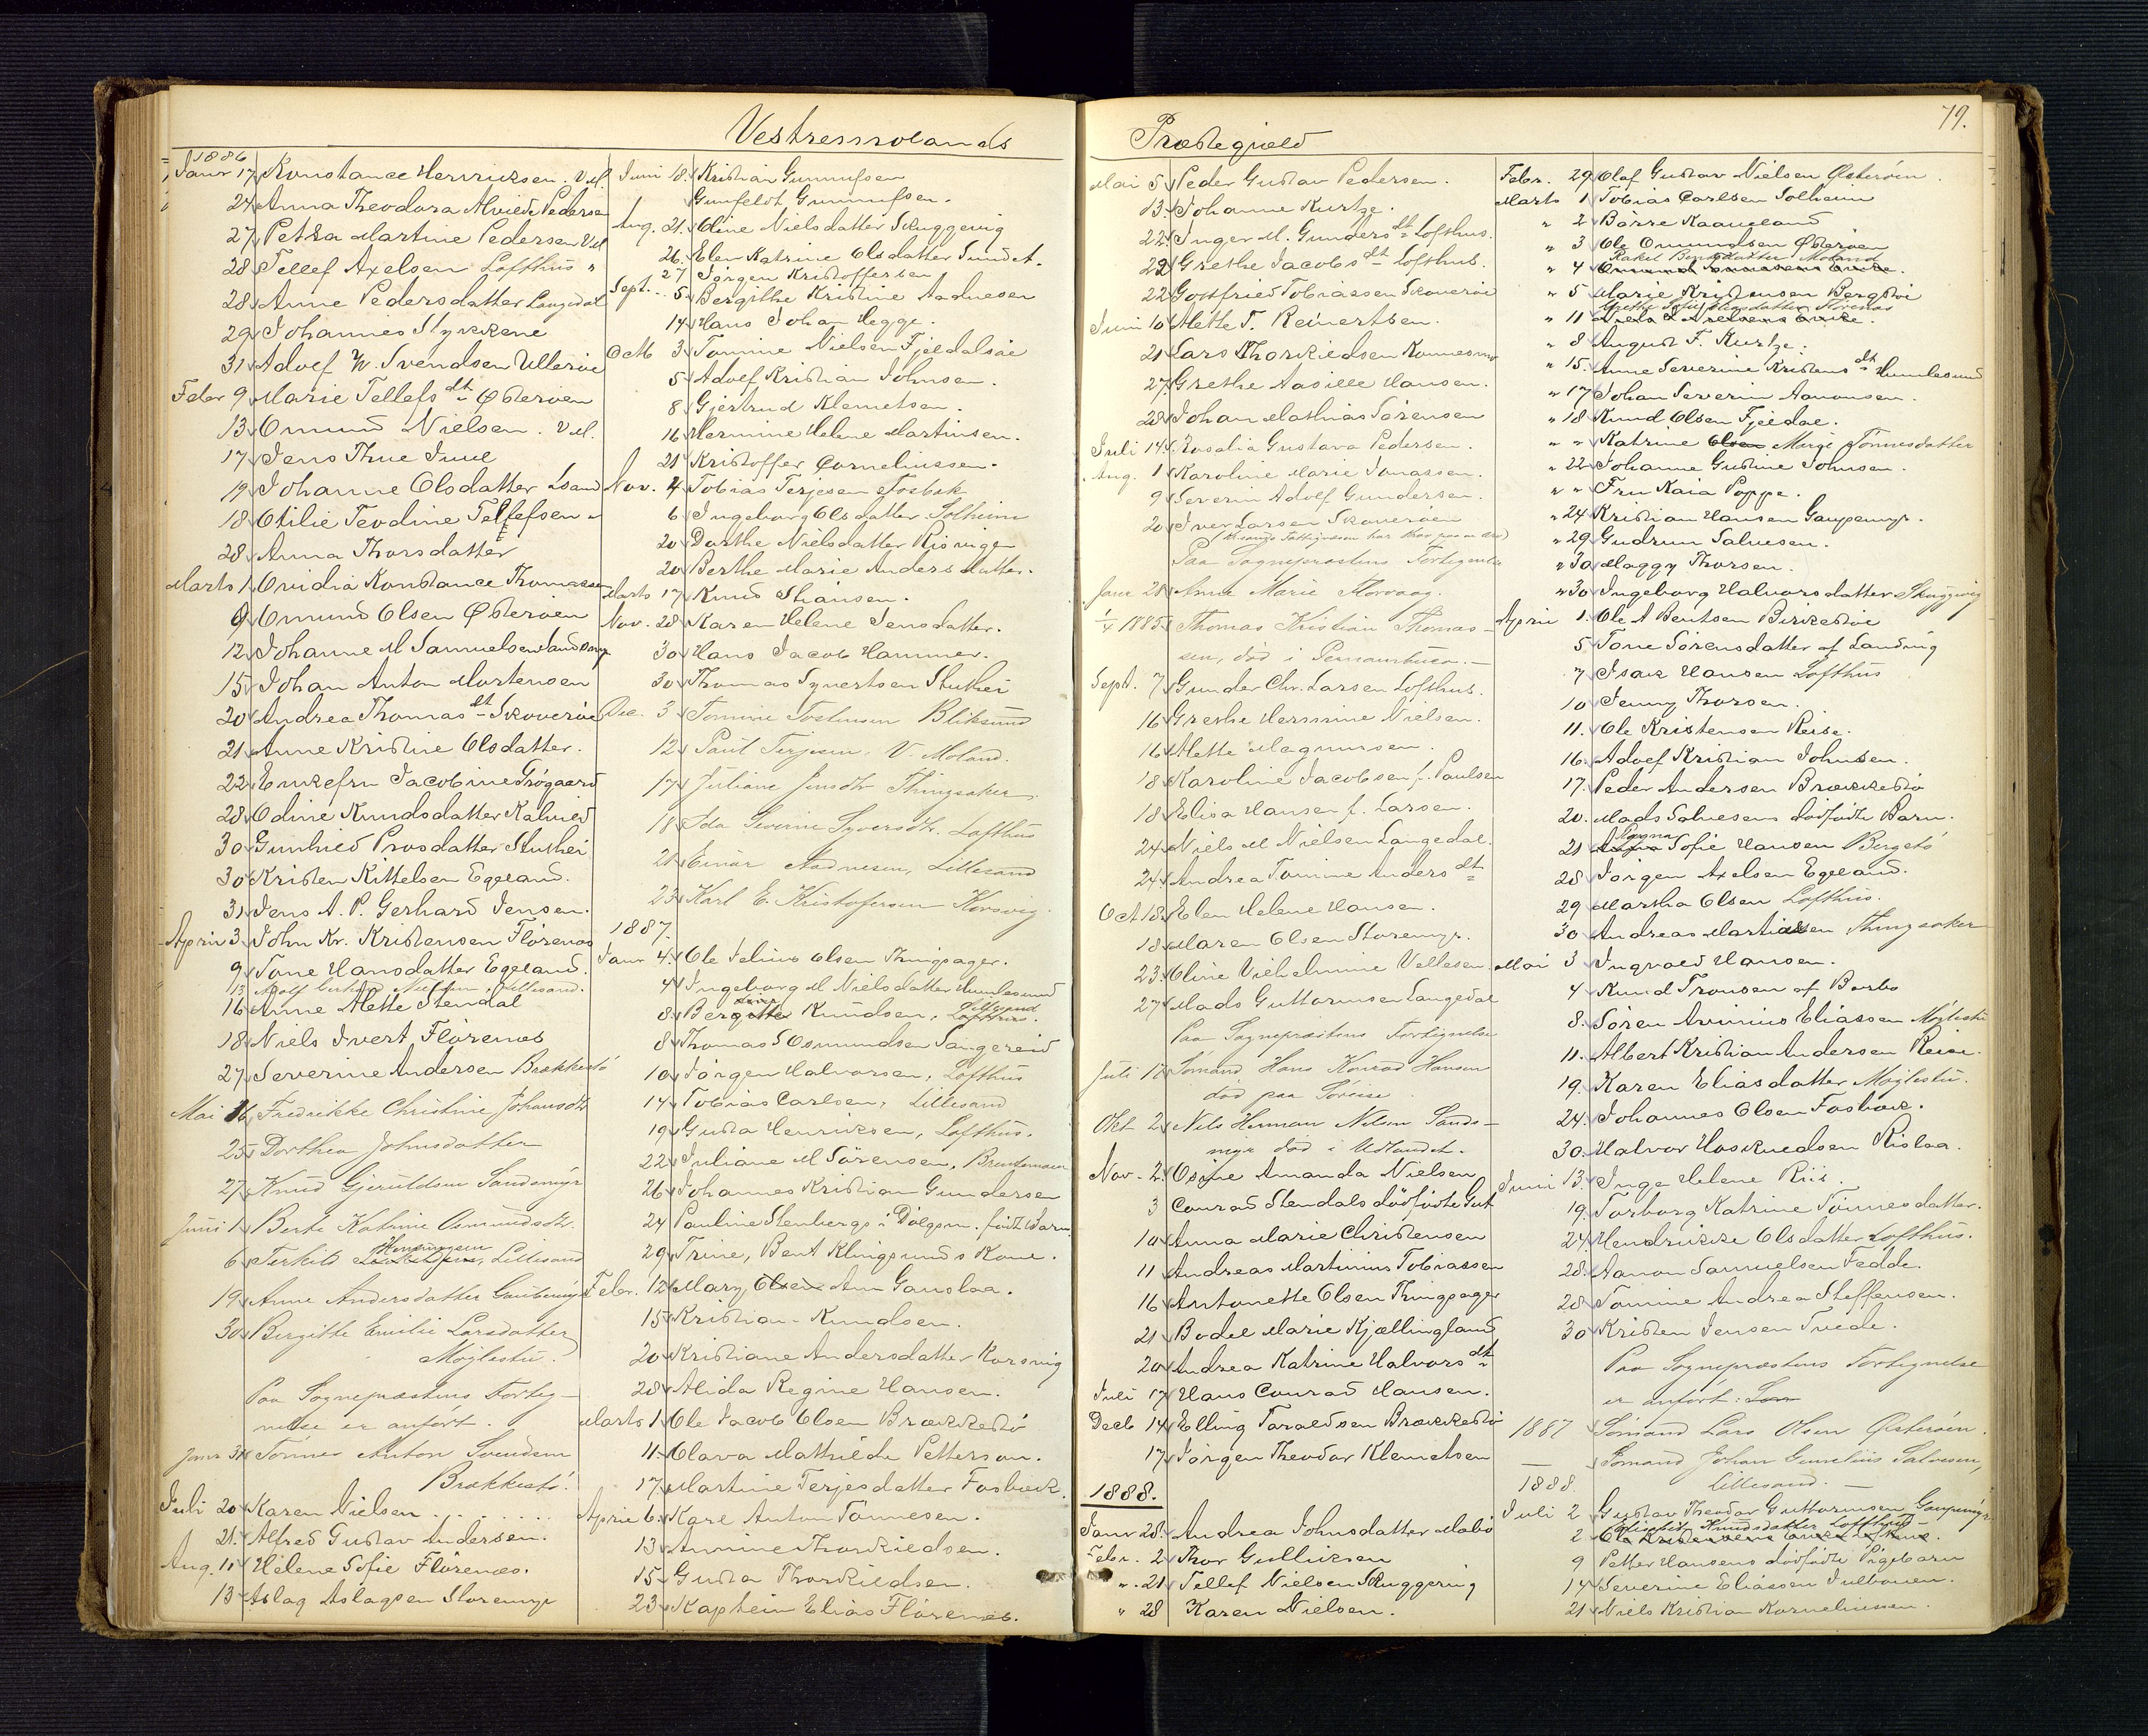 Vestremolands
1886
Janr 17 Konstance Henriksen. V.M.
24 Anna Theodora Alvilde Pedersen
27 Petra Martine Pedersen V.M.
28 Tellef Axelsen Lofthus "
28 Anne Pedersdatter Langedal
29 Johannes Styrkene
31 Adolf W. Svendsen Ullerøie
Febr 9 Marie Tellefs dt Østerøen
13 Omund Nielsen. V.M.
17 Jens Thue Juul
19 Johanne Olsdatter Lsand
18 Otilie Teodine Tellefsen "
28 Anna Thorsdatter
Marts 1 Ovidia Konstance Thomassen
9 Omund Olsen Østerøen
12 Johanne M Samuelsen Sandsmyr
15 Johan Anton Mortensen
20 Andrea Thomas dt Skoverøe
21 Anne Kristine Olsdatter.
22 Enkefru Jacobine Frøgaard
28 Odine Knudsdatter Kalvild
30 Gunhild Prosdatter Stuthei
30 Kristen Kittelsen Egeland.
31 Jens A. P. Gerhard Jensen.
April 3 John Kr. Kristensen Florenæs
9 Tone Hansdatter Egeland.
13 Adolf Nielsen, Lillesand.
16 Anne Mette Stendal
18 Niels Ivert Florenæs
27 Severine Andersen Brækkestø
Mai 16 Fredrikke Christine Johansdtr
25 Dorthea Johnsdatter
27 Knud Gjeruldsen Sandsmyr
Juni 1 Berte Katrine Osmundsdtr.
6 Terkild Henningsen, Lillesand
19 Anne Andersdatter Gaubemyr
30 Bergitte Emilie Larsdatter
Møglestu.
Paa Sognepræstens Forteg-
nelse er anført.
Janr 31 Tønnes Anton Svendsen
Brækkestø.
Juli 20 Karen Nielsen . . . . . . .
21. Alfred Gustav Andersen.
Aug. 11 Helene Sofie Florenæs.
13 Aslag Aslagsen Storemyr
Juni 18. Kristian Gunnufsen
Gunfeldt Gunnufsen.
Aug. 21. Oline Nielsdatter Skuggevig
26. Elen Katrine Olsdatter Sundet.
27 Jørgen Kristoffersen
Sept. 5 Bergithe Kristine Aadnesen
14 Hans Johan Hegge.
Octb 3 Tomine Nielsen Fjeldalsøe
5 Adolf Kristian Johnsen.
8 Gjertrud Klemetsen.
16 Hermine Helene Martinsen.
21 Kristoffer Corneliussen.
Nov. 4 Tobias Terjesen Fosbæk
6 Ingeborg Olsdatter Solheim
20 Dorthe Nielsdatter Risvigen
20 Berthe Marie Andersdatter.
Marts 17 Knud Shansen.
Nov. 28 Karen Helene Jensdatter.
30 Hans Jacob Hammer.
30 Thomas Syvertsen Stuthei
Dec. 3 Tomine Tostensen Bliksund
12 Paul Terjesen, V. Moland.
17 Juliane Jensdtr Thingsaker.
18 Ida Severine Syversdtr. Lofthus
21 Einar Aadnesen, Lillesand
23 Karl E. Kristofersen Korsvig.
1887.
Janr 4. Ole Julius Olsen Thingsager.
4 Ingeborg M Nielsdatter Humlesund
8 Bergitte Knudsen, Lillesand
8 Thomas S Osmundsen Sangereid
10 Jørgen Halvorsen, Lofthus
14 Tobias Carlsen, Lillesand
19 Gusta Henriksen, Lofthus.
22 Juliane M Sörensen,
26 Johannes Kristian Gundersen
24 Pauline Stenbergs i Dølgsm. født Barn
29 Trine, Bent Klingsunds Kone.
Febr. 12 Mary Olsen Ann Gauslaa.
15 Kristian Knudsen.
20 Kristiane Andersdatter Korsvig
28 Alida Regine Hansen.
Marts 1 Ole Jacob Olsen Brækkestø
11 Olava Mathilde Petterson.
17 Martine Terjesdatter Fosbæk.
April 6. Karl Anton Tønnesen.
13 Annine Thorkildsen.
15 Gusta Thorkildsen.
23 Kaptein Elias Florenæs.
Præstegjeld
79.
Mai 5 Peder Gustav Pedersen.
13. Johanne Kurtze.
22 Inger M. Gunders dt Lofthus.
22 Grethe Jacobs dt Lofthus.
22 Gottfried Tobiassen Skoverøe
Juni 10 Mette T. Reinertsen.
21 Lars Thorkildsen
27 Grethe Aasille Hansen.
28 Johan Mathias Sørensen
Juli 14 Rosalia Gustava Pedersen.
Aug. 1 Karoline Marie Jonassen.
9 Severin Adolf Gundersen.
20 Iver Larsen Skoverøen
Paa Sognepræstens Fortegnelse
Janr 28 Anne Marie Florvaag.
1/4 1885 Thomas Kristian Thomas-
sen, død i Pernambuco.
Sept. 7 Gunder Chr. Larsen Lofthus.
16 Grethe Hermine Nielsen.
16 Mette Magnussen.
18 Karoline Jacobsen f. Paulsen
18 Elisa Hansen f. Larsen.
24 Niels M Nielsen Langedal.
24 Andrea Tomine Anders dt
Oct 18 Elen Helene Hansen.
18 Maren Olsen Storemyr.
23. Oline Vilhelmine Vellesen.
27 Mads Guttormsen Langedal
Paa Sognepræstens Fortegnelse
Juli 17 Sømand Hans Konrad Hansen
død paa Søreise.
Okt 2 Nils Herman Nilsen Sands-
myr død i Udlandet.
Nov. 2. Osine Amanda Nielsen
3 Conrad Stendals dødfødte Gut
10 Anna Marie Christensen
11 Andreas Martinius Tobiassen
16 Antonette Olsen Thingsager
21 Bodel Marie Kjællingland
20 Andrea Katrine Halvors dt
Juli 17 Hans Conrad Hansen.
Decb 14 Elling Taraldsen Brækkestø
17 Jørgen Theodor Klemetsen
1888.
Janr 28. Andrea Johnsdatter Malø
Febr. 2 Thor Gulliksen
" 21 Tellef Nielsen Skuggevig
" 28 Karen Nielsen.
Febr. 29 Olaf Gustav Nielsen Østerøen
Marts 1 Tobias Carlsen Solheim
" 2 Børre Kaaveland
" 3 Ole Omundsen Østerøen
Rakel Bentsdatter Moland
" 4
" 5 Marie Kristensen Bergstø
Grethe Sofie Olsdatter Florenæs
" 11
" 8 August F. Kurtze.
" 15. Anne Severine Kristens dt Humlesund
" 17 Johan Severin Aanonsen.
" 18 Knud Olsen Fjeldal.
" " Katrine Olsen Marie Tønnesdatter
" 22 Johanne Gustine Johnsen.
" " Fru Kaia Poppe.
" 24 Kristian Hansen Gaupemyr.
" 29 Gudrun Salvesen.
" 30 Maggy Thorsen.
" 30 Ingeborg Halvorsdatter Skuggevig
April 1. Ole A Bentsen Birkedal
5 Tone Sørensdatter af Landvig
7 Isak Hansen Lofthus
10 Jenny Thorsen.
11. Ole Kristensen Reise.
16. Adolf Kristian Johnsen.
17. Peder Andersen Brækkestø
20. Mads Salvesens dødfødte Barn.
21 Ragna Sofie Hansen Bergstø
28 Jørgen Axelsen Egeland.
29 Martha Olsen Lofthus.
30 Andreas Martiassen Thingsaker
Mai 3 Ingvald Hansen.
4 Knud Tronsen af Barbo
8. Søren Avinius Eliassen Møglestu
11. Albert Kristian Andersen Reise.
19. Karen Eliasdatter Møglestu.
24. Johannes Olsen Fosbæk.
30. Halvor Hoskuldsen Rislaa.
Juni 13. Inge Helene Riis.
19. Torborg Katrine Tønnesdatter.
24 Hendrikke Olsdatter Lofthus.
28. Aanon Samuelsen Fedde.
28 Tomine Andrea Steffensen.
30 Kristen Jensen Tvede.
Paa Sognepræstens Fortegnelse
er anført:
1887 Sømand Lars Olsen Østerøen.
— Sømand Johan Cornelius Salvesen,
1888. Lillesand —
Juli 2 Gustav Theodor Guttormsen Gaupemyr
Knudsdatter Lofthus
2
9 Petter Hansens dødfødte Pigebarn
14 Severine Eliassen Julbauen.
21 Niels Kristian Korneliussen.